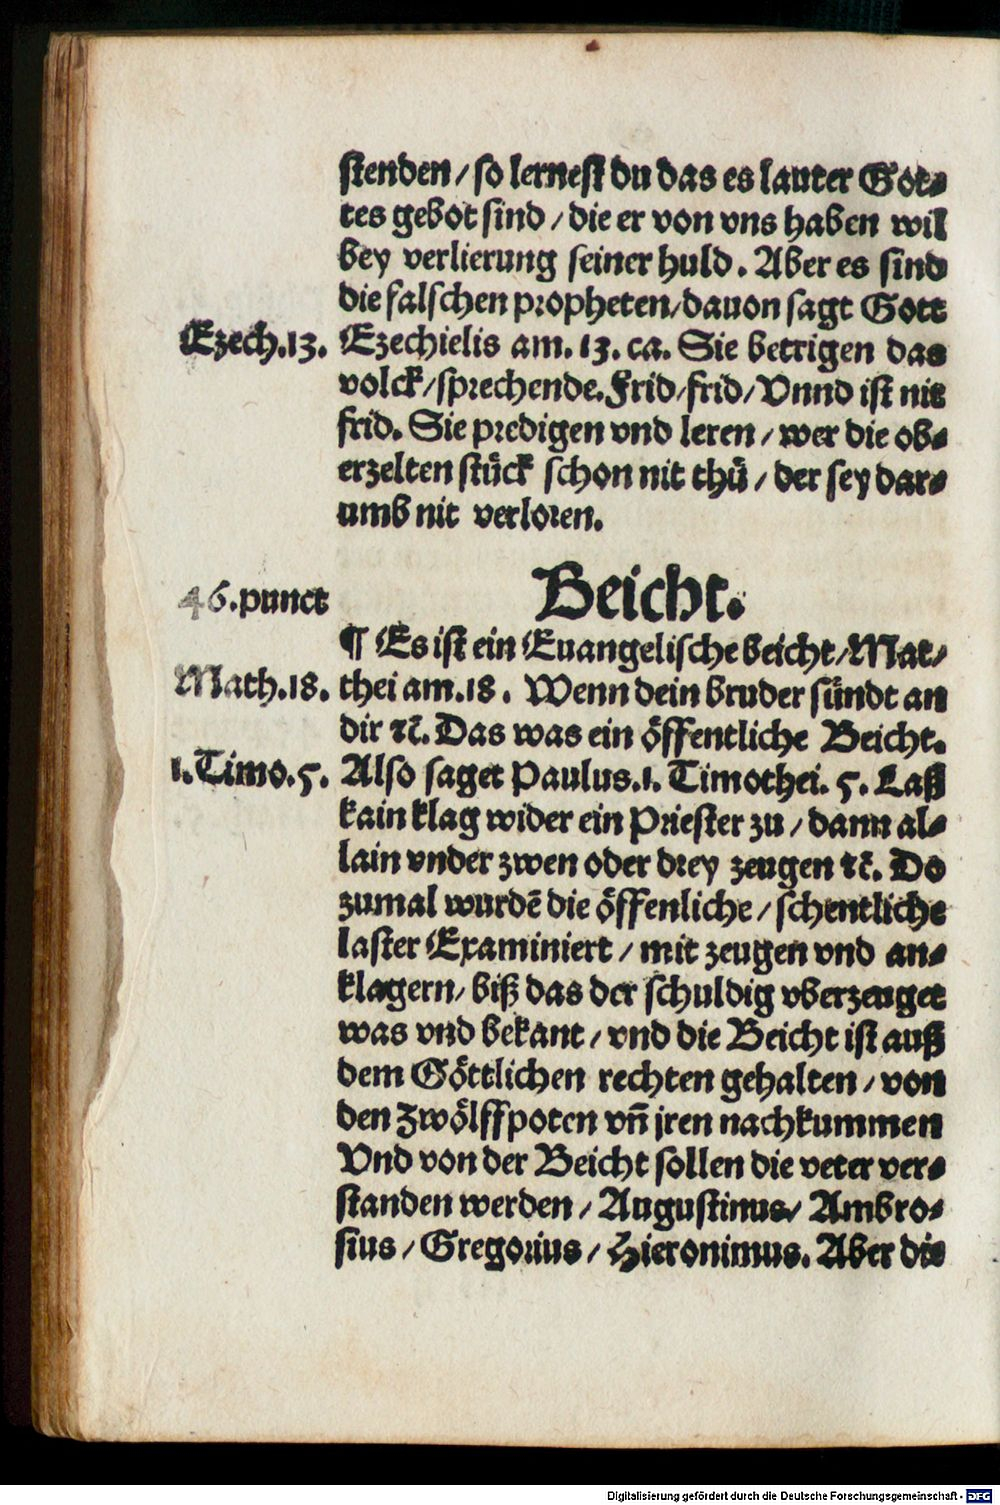 stenden / so lernest du das es lauter Got-
tes gebot sind / die er von vns haben wil
bey verlierung seiner huld. Aber es sind
die falschen propheten / dauon sagt Gott
Ezech.13. Ezechielis am. 13. ca. Sie betrigen das
volck / sprechende. Frid / frid / Vnnd ist nit
frid. Sie predigen vnd leren / wer die ob-
erzelten stück schon nit thü / der sey dar-
umb nit verloren.
46.punct Beicht.
¶ Es ist ein Euangelische beicht / Mat /
Math.18. thei am.18. Wenn dein bruder sündt an
dir ꝛc. Das was ein öffentliche Beicht.
1.Timo.5. Also saget Paulus.1. Timothei. 5. Laß
kain klag wider ein Priester zu / dann al-
lain vnder zwen oder drey zeugen ꝛc. Do
zumal wurdē die öffenliche / schentliche
laster Examiniert / mit zeugen vnd an-
klagern / biß das der schuldig vberzeuget
was vnd bekant / vnd die Beicht ist auß
dem Göttlichen rechten gehalten / von
den Zwölffpoten vn̄ jren nachkummen
Vnd von der Beicht sollen die veter ver-
standen werden / Augustinus / Ambro-
sius / Gregorius / Hieronimus. Aber die
Digitalisierung gefördert durch die Deutsche Forschungsgemeinschaft - DFG